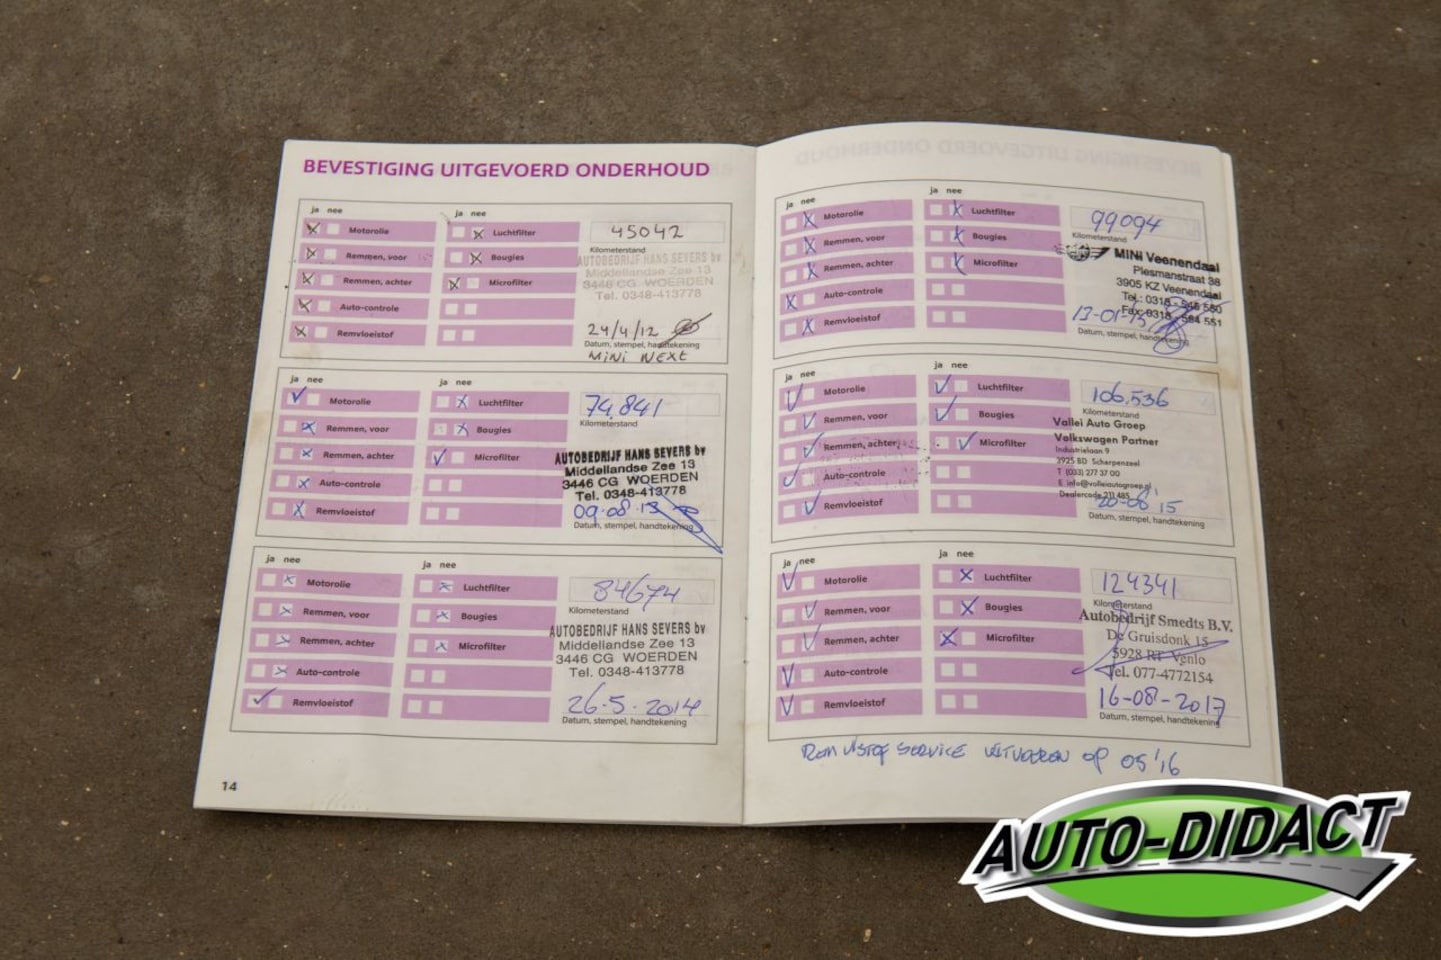 BEVESTIGING UITGEVOERD ONDERHOUD
ja nee
Motorolie
Remmen, voor
Remmen, achter
Auto-controle
Remvloeistof
ja nee
Luchtfilter
Bougies
Microfilter
45042
Kilometerstand
AUTOBEDRIJF HANS SEVERS bv
Middellandse Zee 13
3446 CG WOERDEN
Tel. 0348-413778
24/4/12
Datum, stempel, handtekening
MINI NEXT
ja nee
Motorolie
Remmen, voor
Remmen, achter
Auto-controle
Remvloeistof
ja nee
Luchtfilter
Bougies
Microfilter
74.841
Kilometerstand
AUTOBEDRIJF HANS SEVERS bv
Middellandse Zee 13
3446 CG WOERDEN
Tel. 0348-413778
09.08.13
Datum, stempel, handtekening
ja nee
Motorolie
Remmen, voor
Remmen, achter
Auto-controle
Remvloeistof
ja nee
Luchtfilter
Bougies
Microfilter
84674
Kilometerstand
AUTOBEDRIJF HANS SEVERS bv
Middellandse Zee 13
3446 CG WOERDEN
Tel. 0348-413778
26.5.2014
Datum, stempel, handtekening
14
ja nee
Motorolie
Remmen, voor
Remmen, achter
Auto-controle
Remvloeistof
ja nee
Luchtfilter
Bougies
Microfilter
99094
Kilometerstand
MINI Veenendaal
Plesmanstraat 38
3905 KZ Veenendaal
Tel.: 0318 - 545 550
Fax: 0318 - 584 551
13-01-15
Datum, stempel, handtekening
ja nee
Motorolie
Remmen, voor
Remmen, achter
Auto-controle
Remvloeistof
ja nee
Luchtfilter
Bougies
Microfilter
106.536
Kilometerstand
Vallei Auto Groep
Volkswagen Partner
Industrielaan 9
3925 BD Scherpenzeel
T (033) 277 37 00
E info@valleiautogroep.nl
Dealercode 211 485
20-08 '15
Datum, stempel, handtekening
ja nee
Motorolie
Remmen, voor
Remmen, achter
Auto-controle
Remvloeistof
ja nee
Luchtfilter
Bougies
Microfilter
124341
Kilometerstand
Autobedrijf Smedts B.V.
De Gruisdonk 15
5928 RT Venlo
Tel. 077-4772154
16-08-2017
Datum, stempel, handtekening
SERVICE UITVOEREN OP 05'16
AUTO-DIDACT